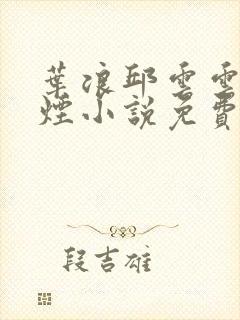 葉浪邱雲雲
煙小說免費
段吉雄